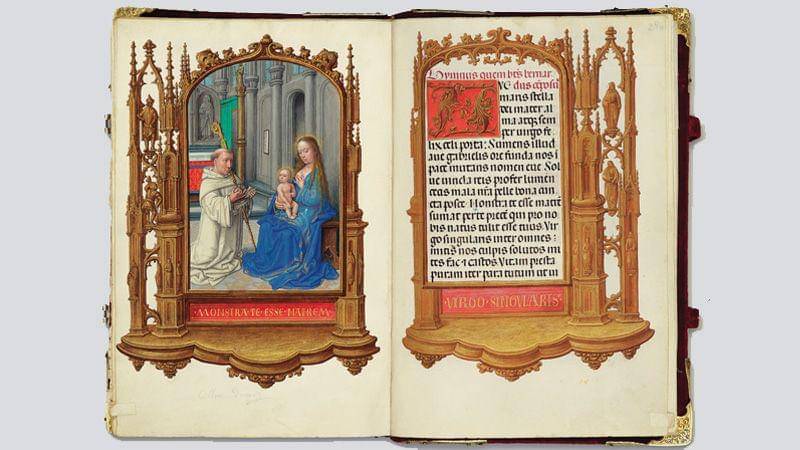 ·MONSTRA·TE·ESSE·MATREM·
Hymnus quem bts bernar
dus cōposuit
AVE
maris stella
dei mater al
ma atqȝ sem
per uirgo fe
lix celi porta: Sumens illud
aue gabrielis ore funda nos i
pace mutans nomen eue. Sol
ue uincla reis profer lumen
cecis mala nr̄a pelle bona cun
cta posce. Monstra te esse matrē
sumat per te precē qui pro no
bis natus tulit esse tuus. Vir
go singularis inter omnes:
mitis nos culpis solutos mi
tes fac et castos. Vitam presta
puram iter para tutum ut ui
·VIRGO·SINGVLARIS·